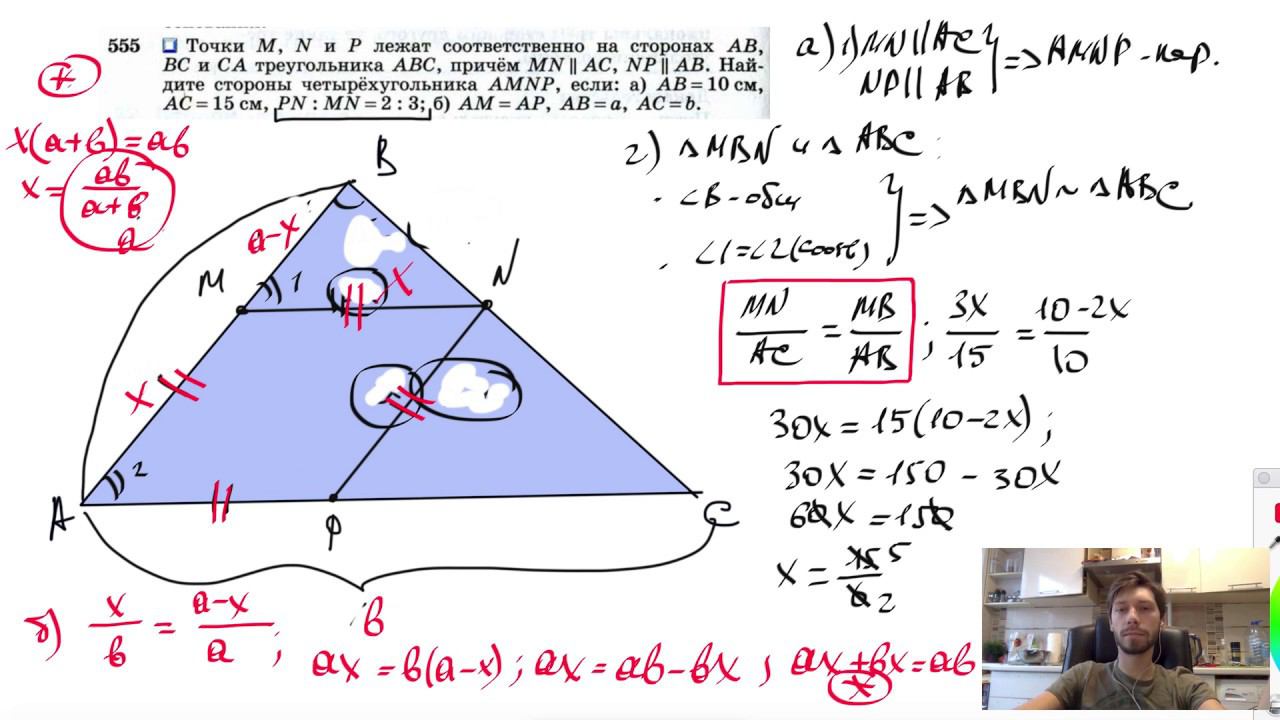 555 Точки M, N и P лежат соответственно на сторонах AB,
BC и CA треугольника ABC, причём MN ∥ AC, NP ∥ AB. Най-
дите стороны четырёхугольника AMNP, если: а) AB = 10 см,
AC = 15 см, PN : MN = 2 : 3; б) AM = AP, AB = a, AC = b.
+
x(a+b)=ab
x = ab/(a+b)
a
а) 1) MN ∥ AC
NP ∥ AB } => AMNP - пар.
2) △MBN и △ABC:
· ∠B - общ
· ∠1=∠2 (соотв) } => △MBN ~ △ABC
MN/AC = MB/AB ; 3x/15 = (10-2x)/10
30x = 15(10-2x);
30x = 150 - 30x
60x = 150
x = 15/6 5 2
B
a-x
M 1 x N
x
A 2 P C
b
б) x/b = (a-x)/a ;
ax = b(a-x); ax = ab-bx ; ax+bx=ab
x